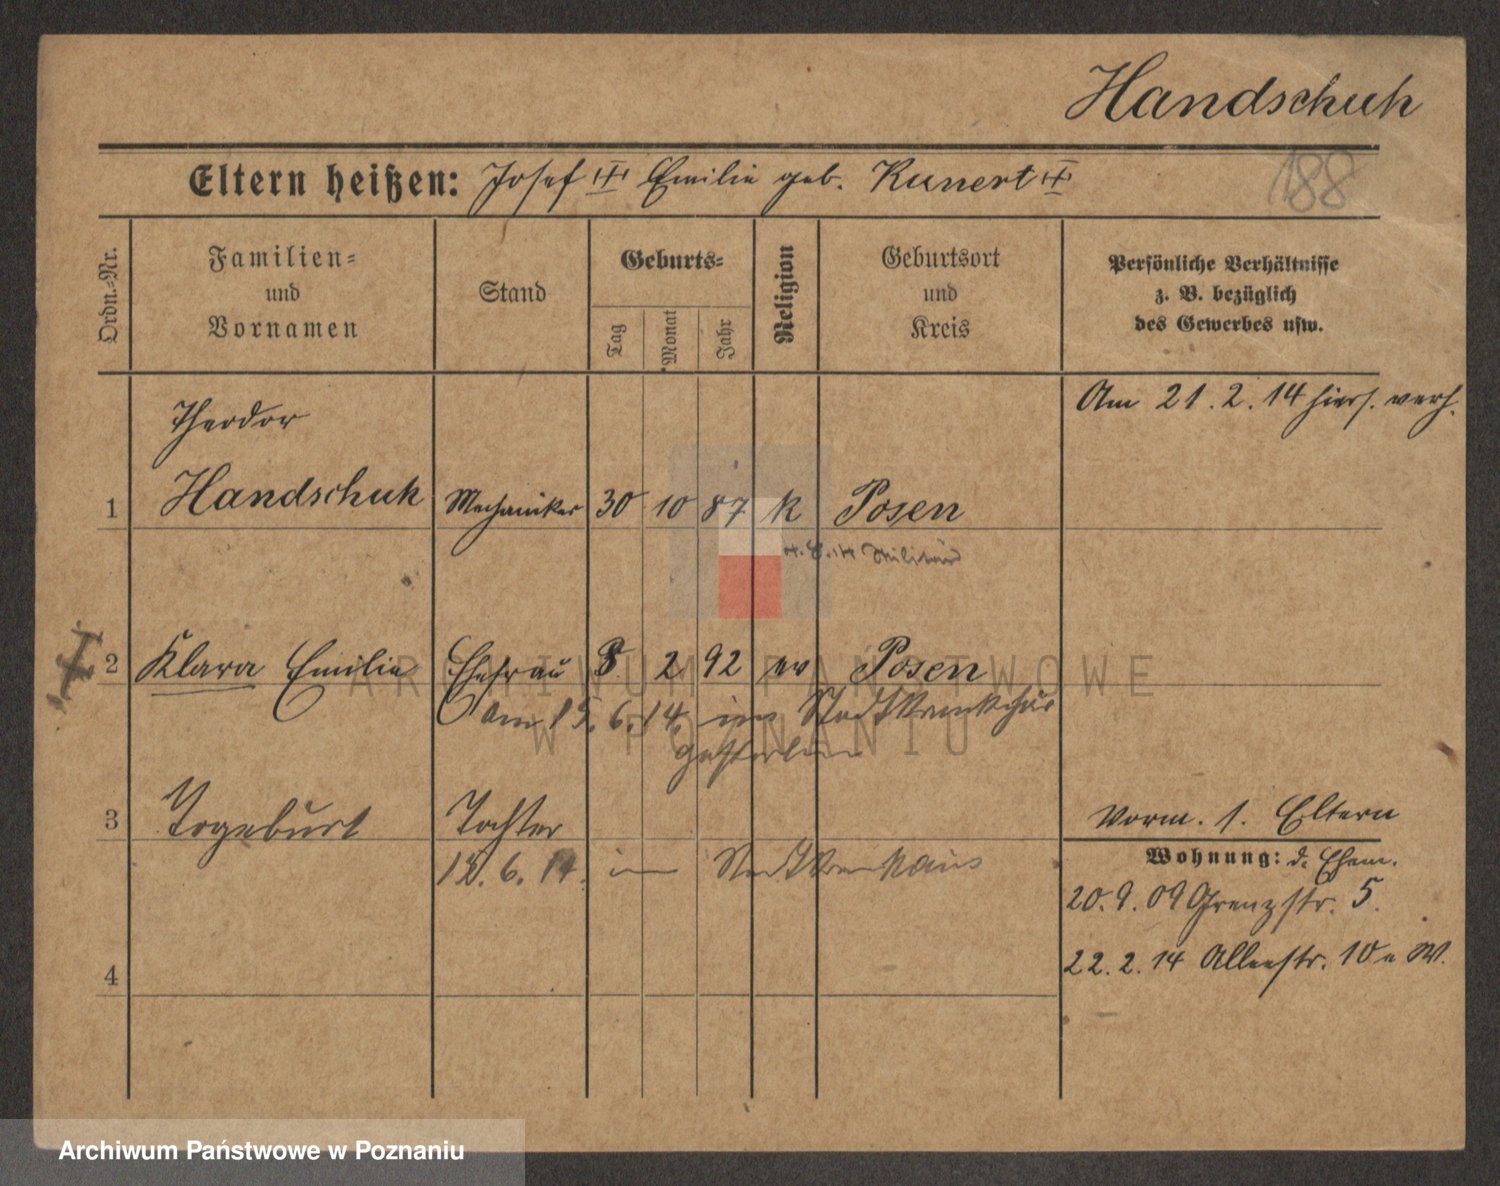 Handschuh
188
Eltern heißen: Josef Emilie geb. Kunert
Ordn.-Nr.
Familien-
und
Vornamen
Stand
Geburts-
Tag
Monat
Jahr
Religion
Geburtsort
und
Kreis
Persönliche Verhältnisse
z. B. bezüglich
des Gewerbes usw.
Am 21. 2. 14 hiers. verh.
Theodor
1 Handschuh Mechaniker 30 10 87 k Posen
Militär
2 Klara Emilie Ehefrau 8 2 92 ev Posen
Am 15. 6. 14. im Stadtkrankenhaus
gestorben
3 Togeburt Tochter
Vorm. s. Eltern
Wohnung: d. Ehem.
6. 14. im Stadtkrankenhaus
20. 9. 09 Grenzstr. 5.
22. 2. 14 Alleestr. 10 W.
4
ARCHIWUM PAŃSTWOWE
W POZNANIU
Archiwum Państwowe w Poznaniu